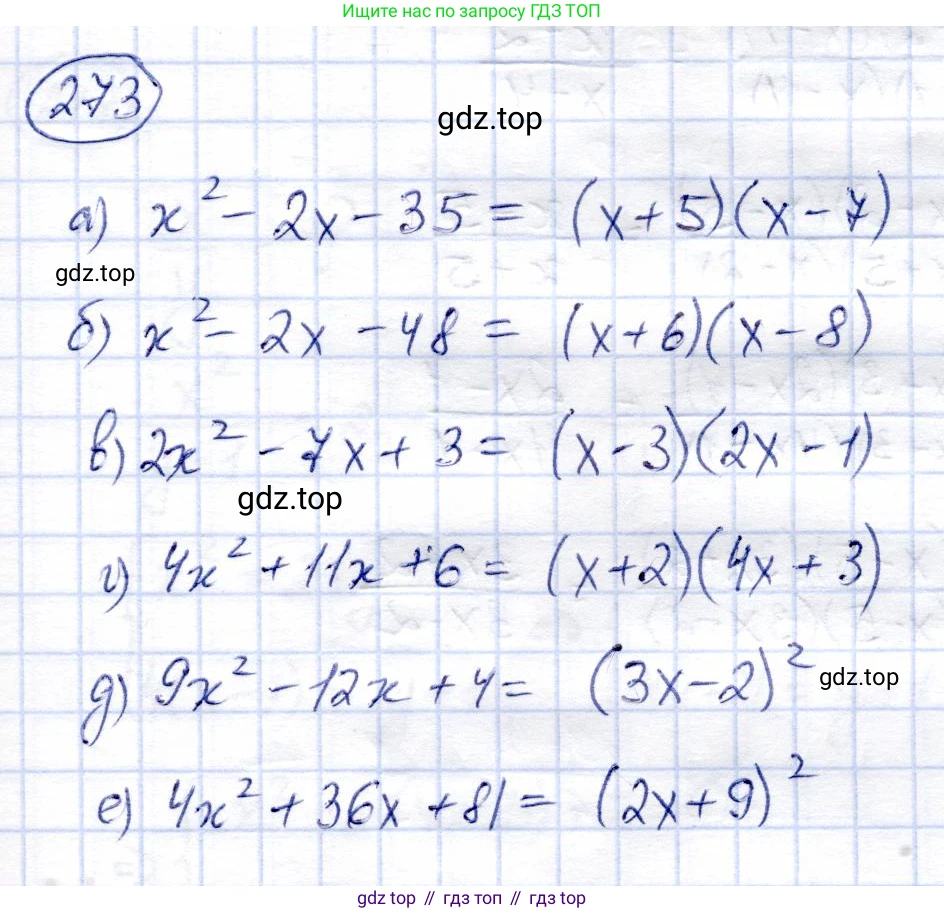 Ищите нас по запросу ГДЗ ТОП
273
gdz.top
а) x² - 2x - 35 = (x + 5)(x - 7)
gdz.top
б) x² - 2x - 48 = (x + 6)(x - 8)
в) 2x² - 7x + 3 = (x - 3)(2x - 1)
gdz.top
г) 4x² + 11x + 6 = (x + 2)(4x + 3)
д) 9x² - 12x + 4 = (3x - 2)²
gdz.top
е) 4x² + 36x + 81 = (2x + 9)²
gdz top // гдз топ // gdz top